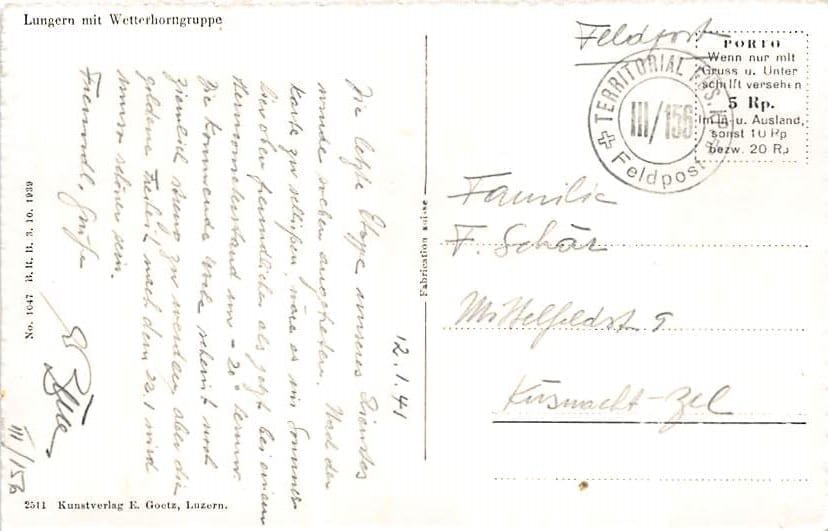 Lungern mit Wetterhorngruppe
12.1.41
Die letzte Etappe unseres Dienstes
wurde soeben angetreten. Nach der
Karte zu schliessen, wäre es im Sommer
hier oben freundlicher als jetzt bei einem
Thermometerstand von - 20° Celsius.
Die kommende Woche scheint noch
ziemlich streng zu werden, aber die
goldene Freiheit nach dem 22.1 wird
umso schöner sein.
Freundl. Grüsse
III/156
No. 1047 B.R.B. 3. 10. 1939
2511 Kunstverlag E. Goetz, Luzern.
Fabrication suisse
Feldpost
TERRITORIAL
III/156
Feldpost
PORTO
Wenn nur mit
Gruss u. Unter
schrift versehen
5 Rp.
Im In- u. Ausland,
sonst 10 Rp
bezw. 20 Rp
Familie
F. Schär
Mittelfeldst 9
Küsnacht-Zch